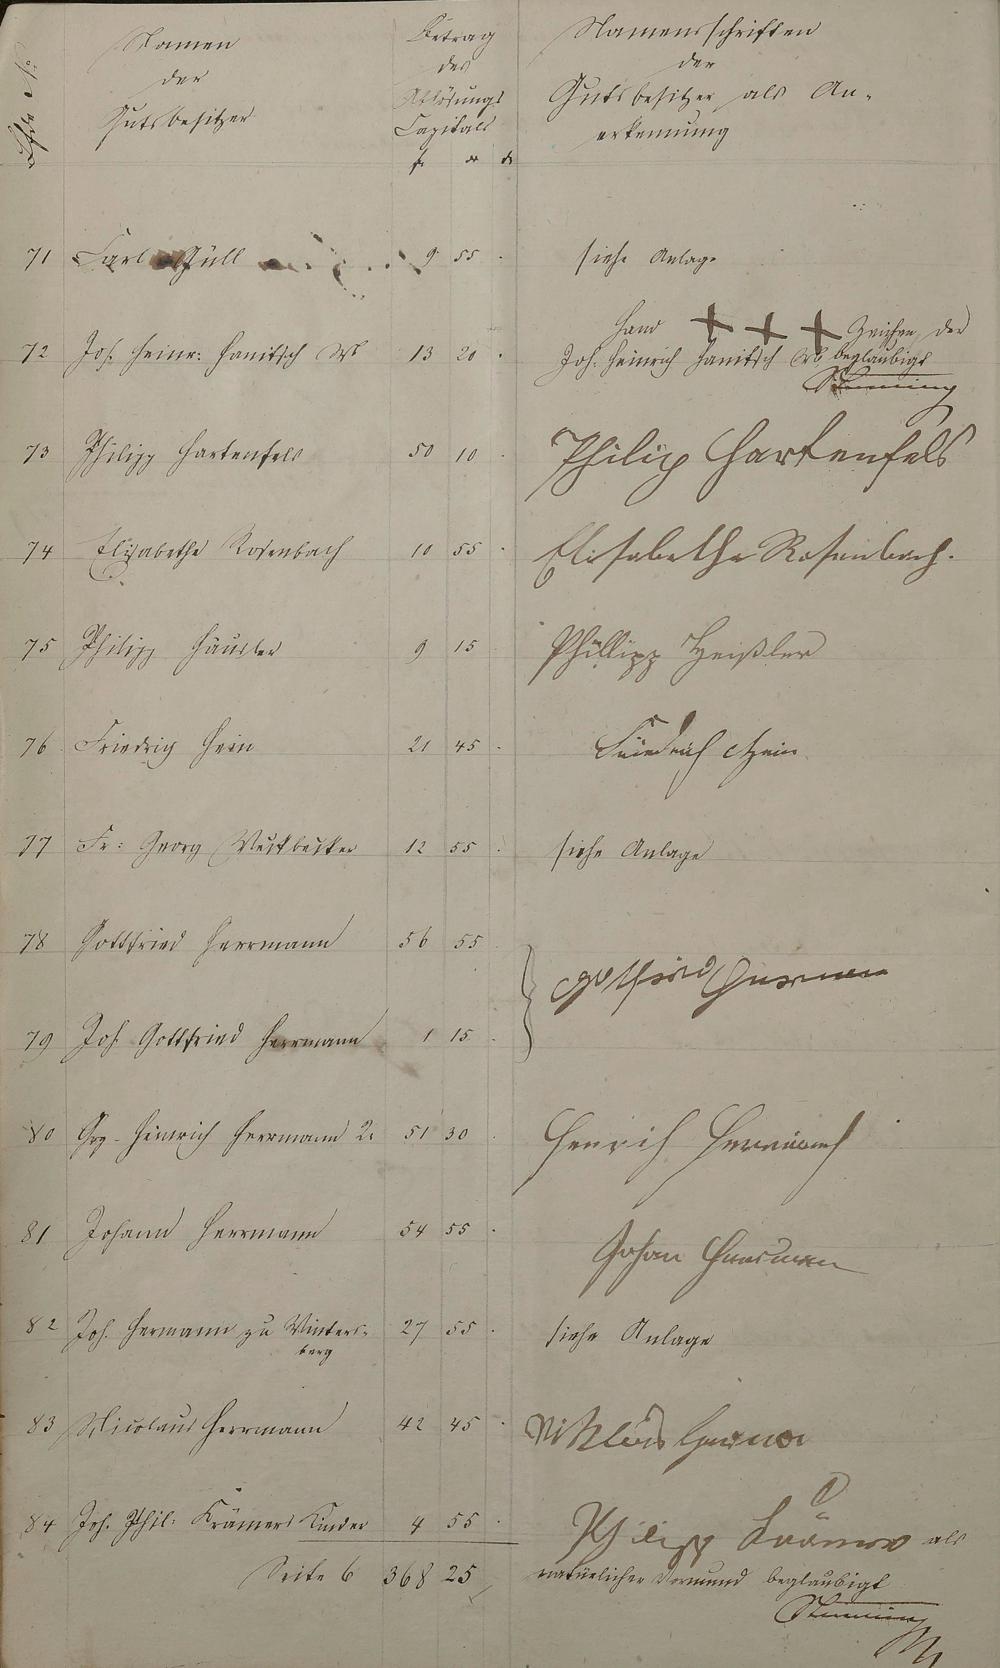 Namen
der
Gutsbesitzer
Betrag
des
Ablösungs
Capitals
Namensschriften
der
Gutsbesitzer als An-
erkennung
71 Carl Züll 9 55 siehe Anlage
Hand + + + Zeichen der
72 Joh. Heinr: Hanitsch Wb 13 20
Joh. Heinrich Hanitsch Wb beglaubigt
73 Philipp Hartenfels 50 10 Philip Hartenfels
74 Elisabetha Rosenbach 10 55 Elisabetha Rosenbach.
75 Philipp Häusler 9 15 Phillipp Heißler
76 Friedrich Hein 21 45 Friedrich Hein
77 Fr: Georg 12 55 siehe Anlage
78 Gottfried Herrmann 56 55
79 Joh Gottfried Herrmann 1 15
80 Grg. Heinrich Herrmann 2r 51 30 Henrich
81 Johann Herrmann 54 55 Johan
82 Joh. Hermann zu Winters- 27 55 siehe Anlage
berg
83 Nicolaus Herrmann 42 45 Niklas
84 Joh. Phil: Krämers Kinder 4 55 Philipp Krämer als
Seite 6 368 25 natürlicher Vormund beglaubigt